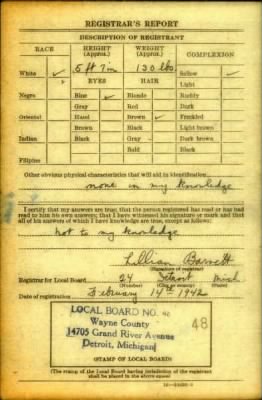 REGISTRAR'S REPORT
DESCRIPTION OF REGISTRANT
RACE HEIGHT (Approx.) WEIGHT (Approx.) COMPLEXION
White ✓ 5 ft 7 in 130 lbs. Sallow ✓
EYES HAIR Light
Negro Blue ✓ Blonde Ruddy
Gray Red Dark
Oriental Hazel Brown ✓ Freckled
Brown Black Light brown
Indian Black Gray Dark brown
Bald Black
Filipino
Other obvious physical characteristics that will aid in identification
none in my knowledge
I certify that my answers are true; that the person registered has read or has had
read to him his own answers; that I have witnessed his signature or mark and that
all of his answers of which I have knowledge are true, except as follows:
not to my knowledge
Lillian Barrett
(Signature of registrar)
Registrar for Local Board 24 Detroit Mich
(Number) (City or county) (State)
Date of registration February 14th 1942
LOCAL BOARD NO.
Wayne County
14705 Grand River Avenue
Detroit, Michigan
48
(STAMP OF LOCAL BOARD)
(The stamp of the Local Board having jurisdiction of the registrant
shall be placed in the above space.)